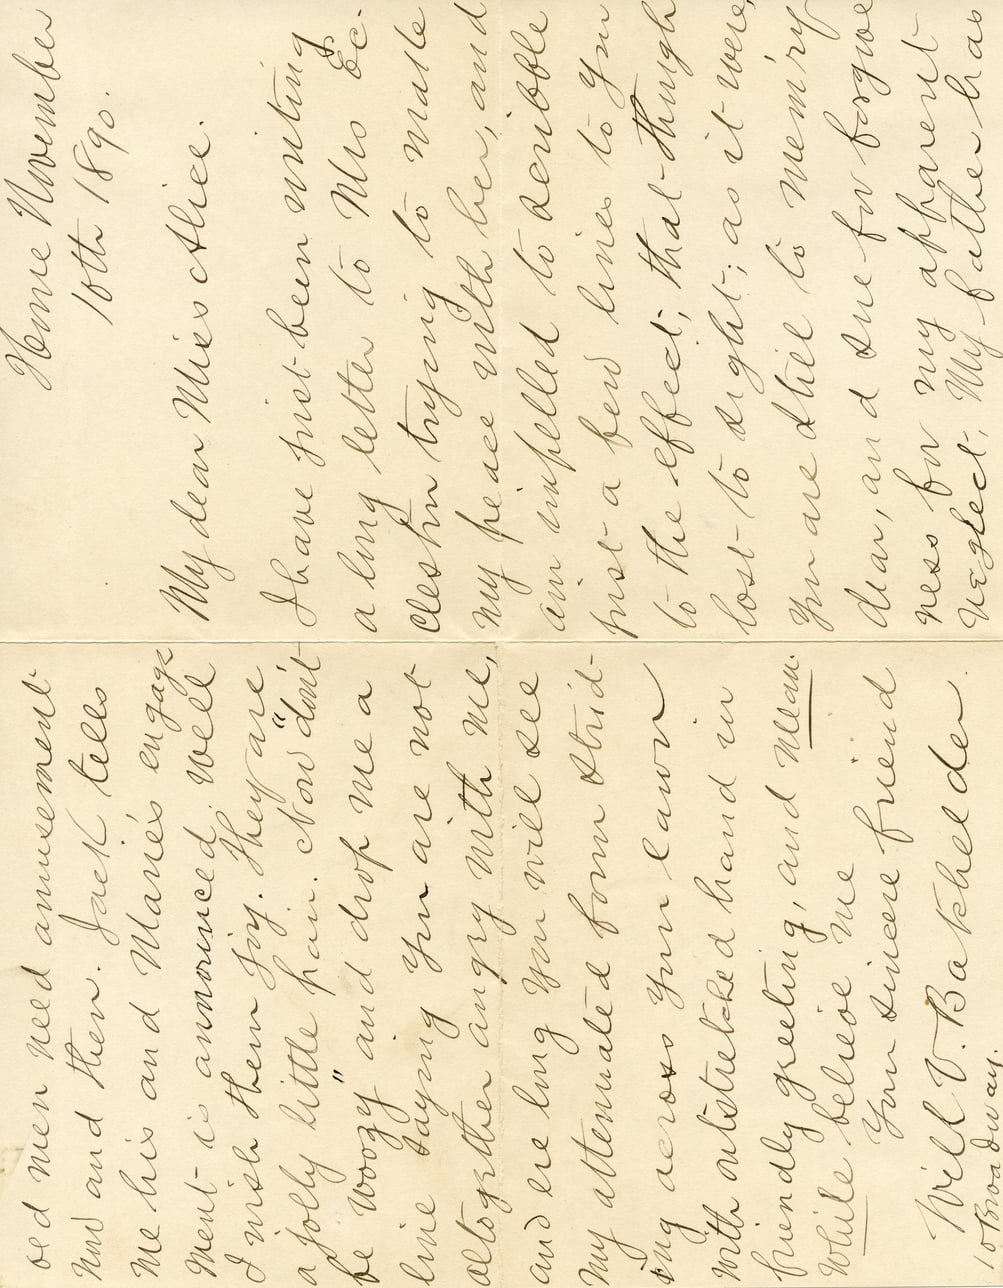 Home November
10th 1890.
My dear Miss Alice.
I have just been writing
a long letter to Mrs Ec-
cleston trying to make
my peace with her, and
am impelled to scribble
just a few lines to you
to the effect, that though
lost to sight, as it were,
you are still to mem'ry
dear, and sue for forgive
ness for my apparent
neglect. My father has
ed men need amusement
now and then. Jack tells
me his and Marie's engage
ment is announced. Well
I wish them joy. They are
a jolly little pair. Now "don't
be woozy" and drop me a
line saying you are not
altogether angry with me,
and ere long you will see
my attenuated form strid-
ing across your lawn
with outstretched hand in
friendly greeting, and mean
while believe me
Your sincere friend
Will V. Bakhelder.
Broadway.